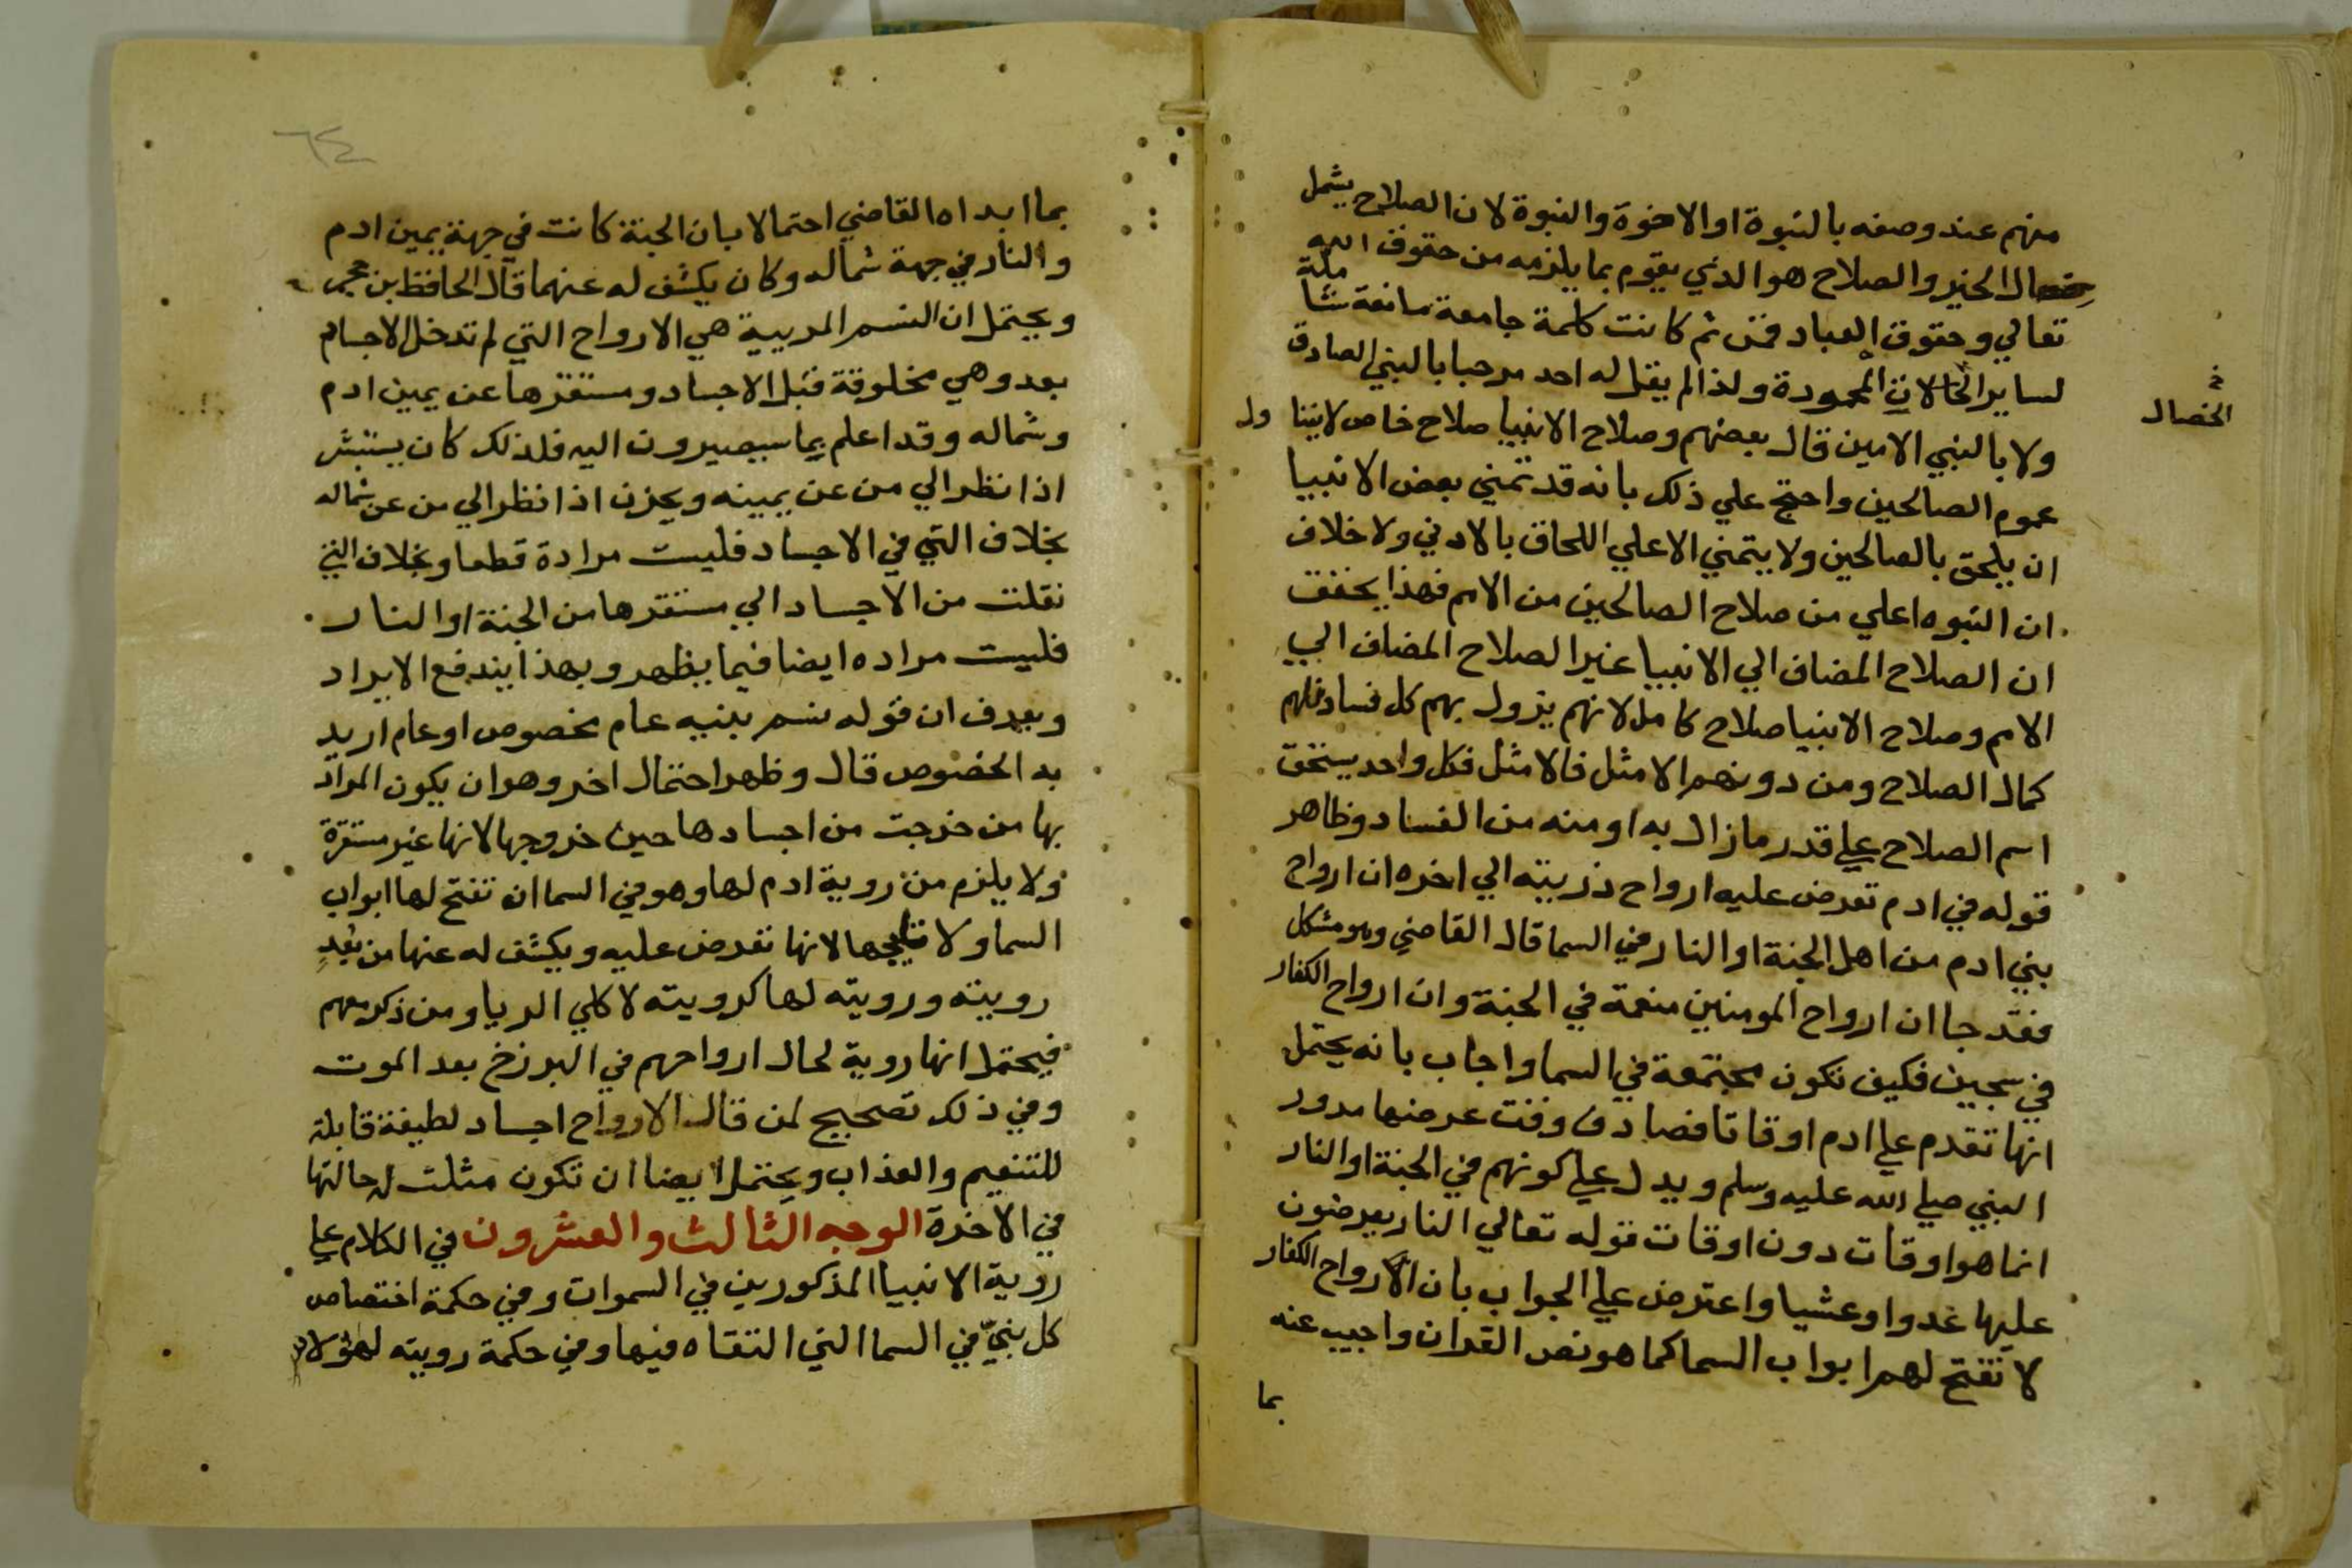 منهم عند وصفه بالنبوة او الاخوة والنبوة لان الصلاح يشمل
خصال الخير والصلاح هو الذي يقوم بما يلزمه من حقوق الله
تعالي وحقوق العباد فمن ثم كانت كلمة جامعة مانعة شاملة
لساير الخلال المحمودة ولذا لم يقل له احد مرحبا بالنبي الصادق
الخصال
ولا بالنبي الامين قال بعضهم وصلاح الانبيا صلاح خاص لا يتنا ول
عموم الصالحين واحتج علي ذلك بانه قد تمني بعض الانبيا
ان يلحق بالصالحين ولا يتمني الاعلي اللحاق بالادني ولا خلاف
ان النبوه اعلي من صلاح الصالحين من الامم فهذا يحقق
ان الصلاح المضاف الي الانبيا غير الصلاح المضاف الي
الامم وصلاح الانبيا صلاح كامل لانهم يزول بهم كل فساد فلهم
كمال الصلاح ومن دونهم الامثل فالامثل فكل واحد يستحق
اسم الصلاح علي قدر ما زال به او منه من الفساد وظاهر
قوله في ادم تعرض عليه ارواح ذريته الي اخره ان ارواح
بني ادم من اهل الجنة او النار في السما قال القاضي وهو مشكل
فقد جا ان ارواح المومنين منعمة في الجنة وان ارواح الكفار
في سجين فكيف تكون مجتمعة في السما واجاب بانه يحتمل
انها تقدم علي ادم اوقاتا فصادف وقت عرضها مرور
النبي صلي الله عليه وسلم ويدل علي كونهم في الجنة او النار
انما هو اوقات دون اوقات قوله تعالي النار يعرضون
عليها غدوا وعشيا واعترض علي الجواب بان ارواح الكفار
لا تفتح لهم ابواب السما كما هو نص القران واجيب عنه
بما
٦٤
بما ابداه القاضي احتمالا بان الجنة كانت في جهة يمين ادم
والنار في جهة شماله وكان يكشف له عنهما قال الحافظ بن حجر
ويحتمل ان النسم المريية هي الارواح التي لم تدخل الاجسام
بعد وهي مخلوقة قبل الاجساد ومستقرها عن يمين ادم
وشماله وقد اعلم بما سيصيرون اليه فلذلك كان يستبشر
اذا نظر الي من عن يمينه ويحزن اذا نظر الي من عن شماله
بخلاف التي في الاجساد فليست مرادة قطعا وبخلاف التي
نقلت من الاجساد الي مستقرها من الجنة او النار
فليست مراده ايضا فيما يظهر وبهذا يندفع الايراد
ويعرف ان قوله نسم بنيه عام مخصوص او عام اريد
به الخصوص قال وظهر احتمال اخر وهو ان يكون المراد
بها من خرجت من اجسادها حين خروجها لانها غير مستقرة
ولا يلزم من روية ادم لها وهو في السما ان تفتح لها ابواب
السما ولا تلجها لانها تعرض عليه ويكشف له عنها من بعد
رويته ورويته لها كرويته لاكلي الربا ومن ذكر معهم
فيحتمل انها روية لحال ارواحهم في البرزخ بعد الموت
وفي ذلك تصحيح لمن قال الارواح اجساد لطيفة قابلة
للتنعيم والعذاب ويحتمل ايضا ان تكون مثلت له حالتها
في الاخرة الوجه الثالث والعشرون في الكلام علي
روية الانبيا المذكورين في السموات وفي حكمة اختصاص
كل نبي في السما التي التقاه فيها وفي حكمة رويته لهولاء